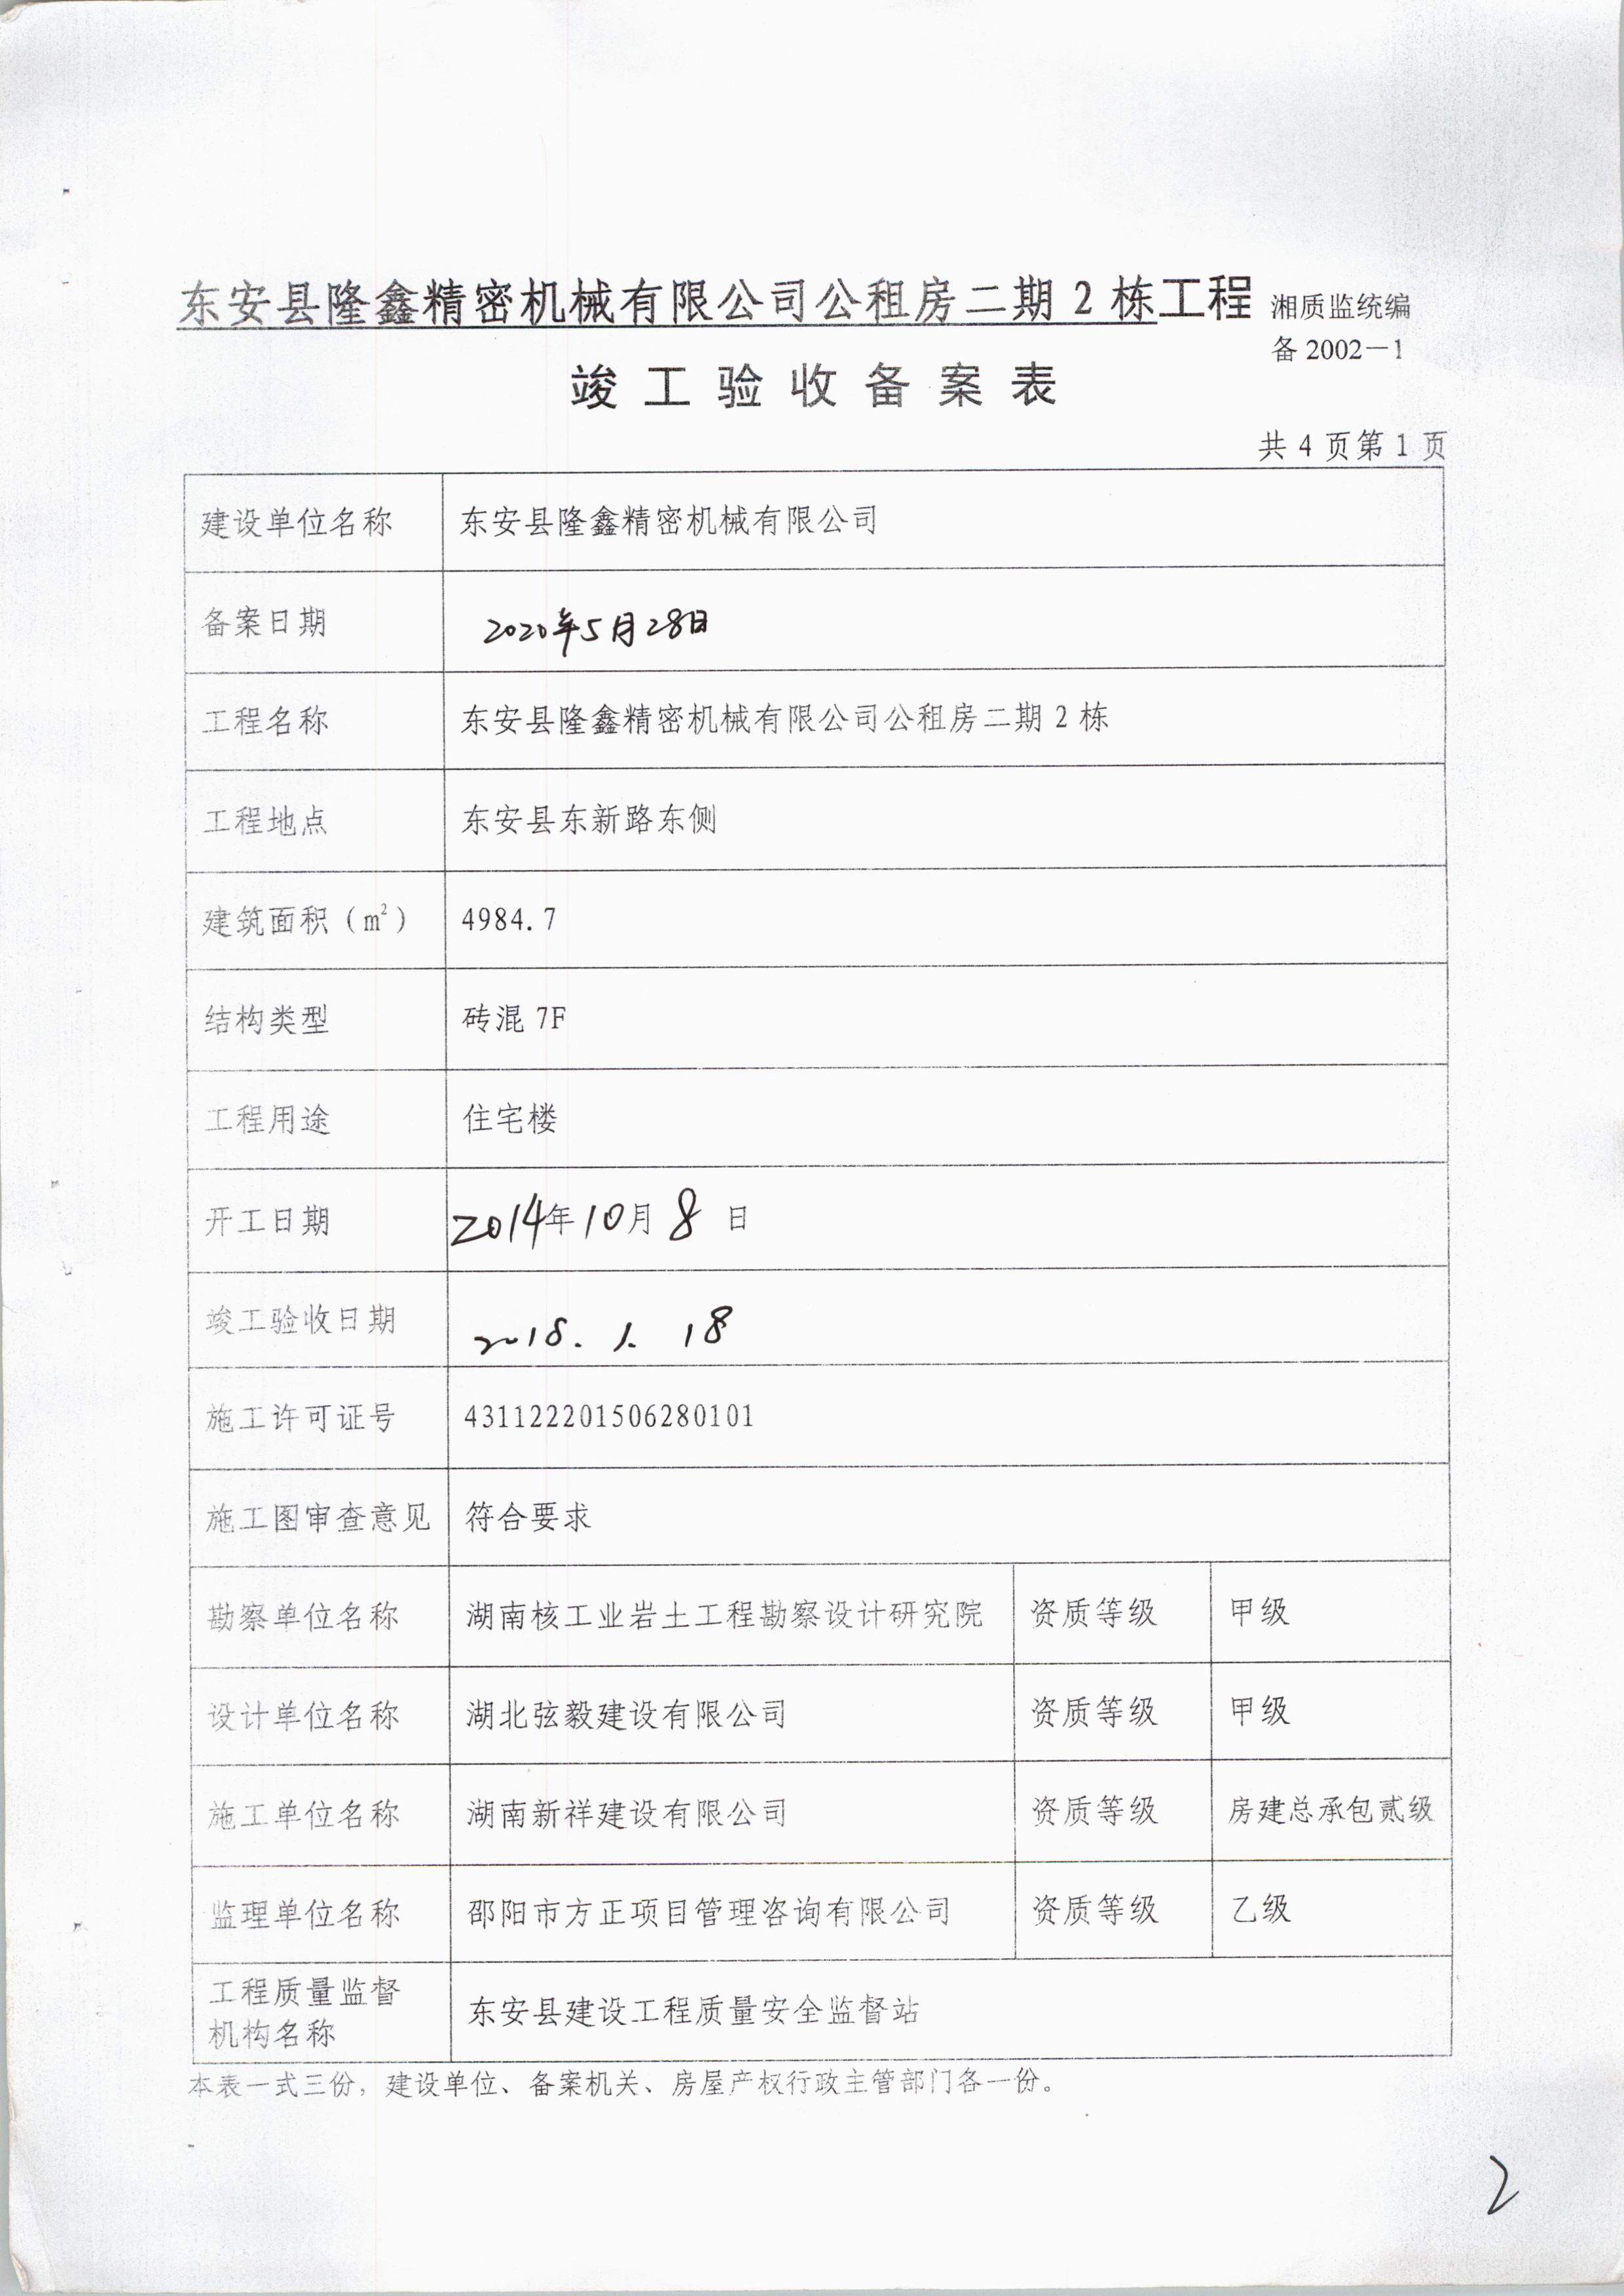 东安县隆鑫精密机械有限公司公租房二期2栋工程 湘质监统编
备2002—1
竣工验收备案表
共4页第1页
建设单位名称 东安县隆鑫精密机械有限公司
备案日期 2020年5月28日
工程名称 东安县隆鑫精密机械有限公司公租房二期2栋
工程地点 东安县东新路东侧
建筑面积（m²） 4984.7
结构类型 砖混7F
工程用途 住宅楼
开工日期 2014年10月8日
竣工验收日期 2018.1.18
施工许可证号 431122201506280101
施工图审查意见 符合要求
勘察单位名称 湖南核工业岩土工程勘察设计研究院 资质等级 甲级
设计单位名称 湖北弦毅建设有限公司 资质等级 甲级
施工单位名称 湖南新祥建设有限公司 资质等级 房建总承包贰级
监理单位名称 邵阳市方正项目管理咨询有限公司 资质等级 乙级
工程质量监督
机构名称 东安县建设工程质量安全监督站
本表一式三份，建设单位、备案机关、房屋产权行政主管部门各一份。
2